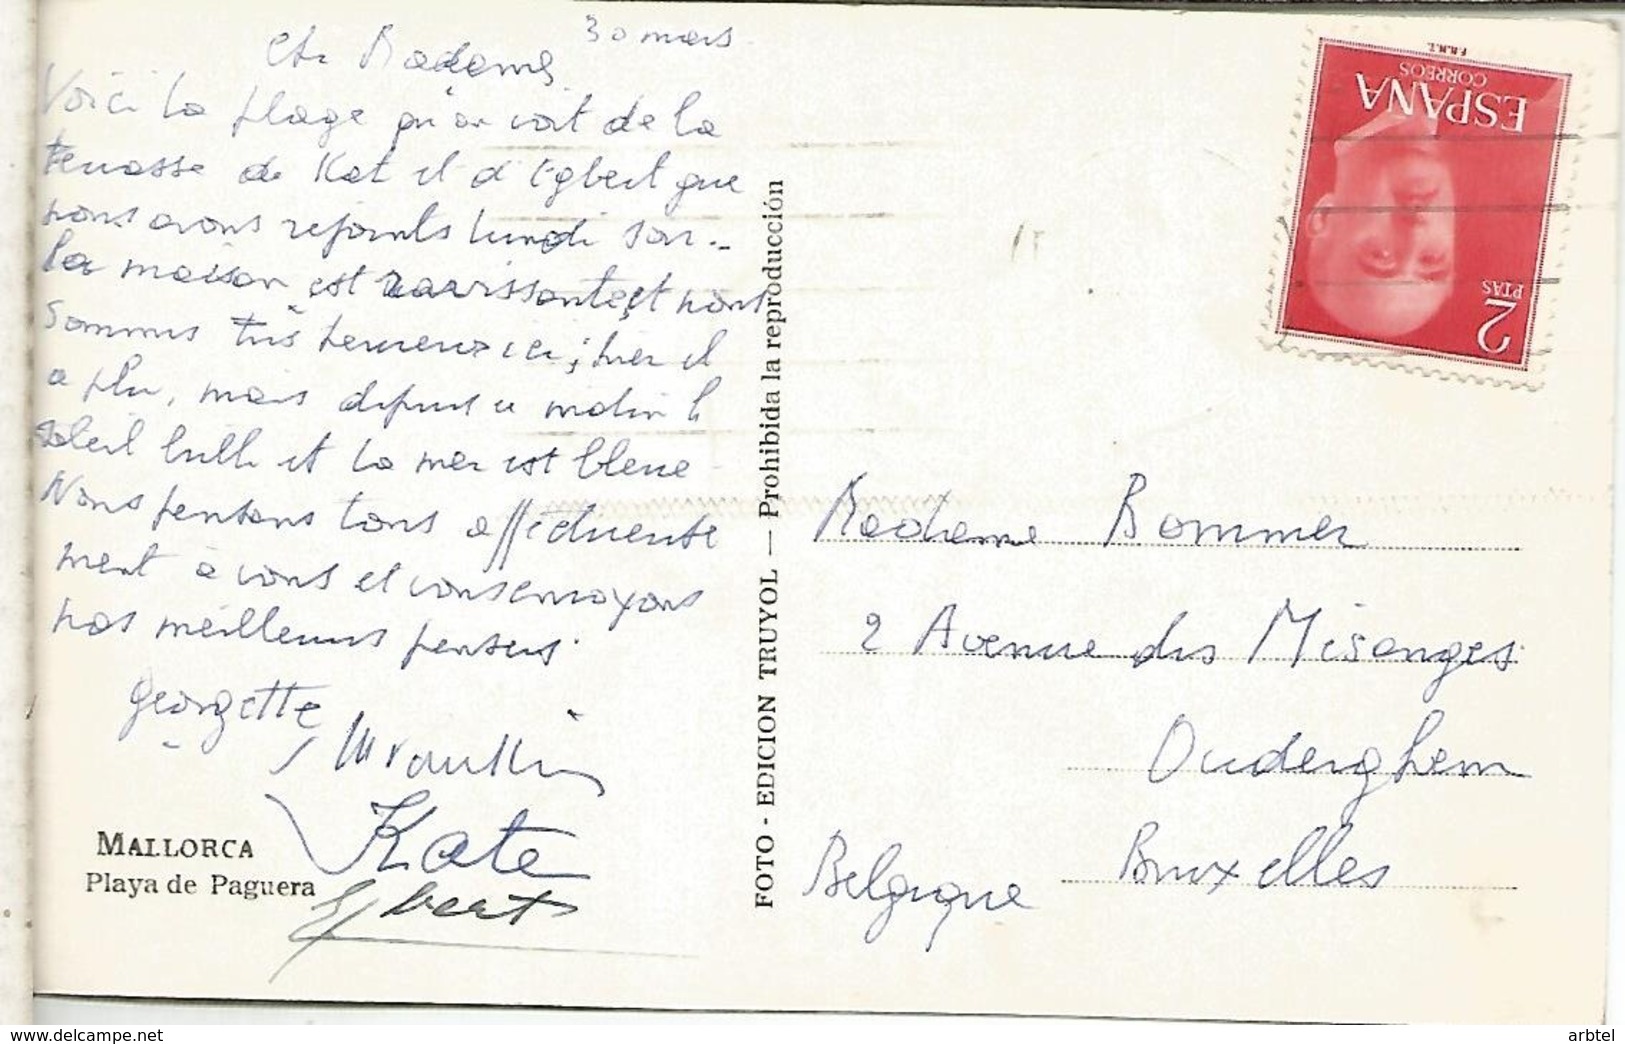 30 mars
Ch. Madame,
Voici la plage qu'on voit de la
terrasse de Kat et d'Egbert que
nous avons rejoints lundi soir..
la maison est ravissante et nous
sommes très heureux ici; hier il
a plu, mais depuis ce matin le
soleil brille et la mer est bleue
Nous pensons tous affectueuse
ment à vous et vous envoyons
nos meilleures pensées.
Georgette
Kate
Egbert
MALLORCA
Playa de Paguera
FOTO - EDICION TRUYOL — Prohibida la reproducción
F.N.M.T.
CORREOS
ESPAÑA
2
PTAS
Madame Bommer
2 Avenue des Mésanges
Ouderghem
Bruxelles
Belgique
delcampe.net
arbtel